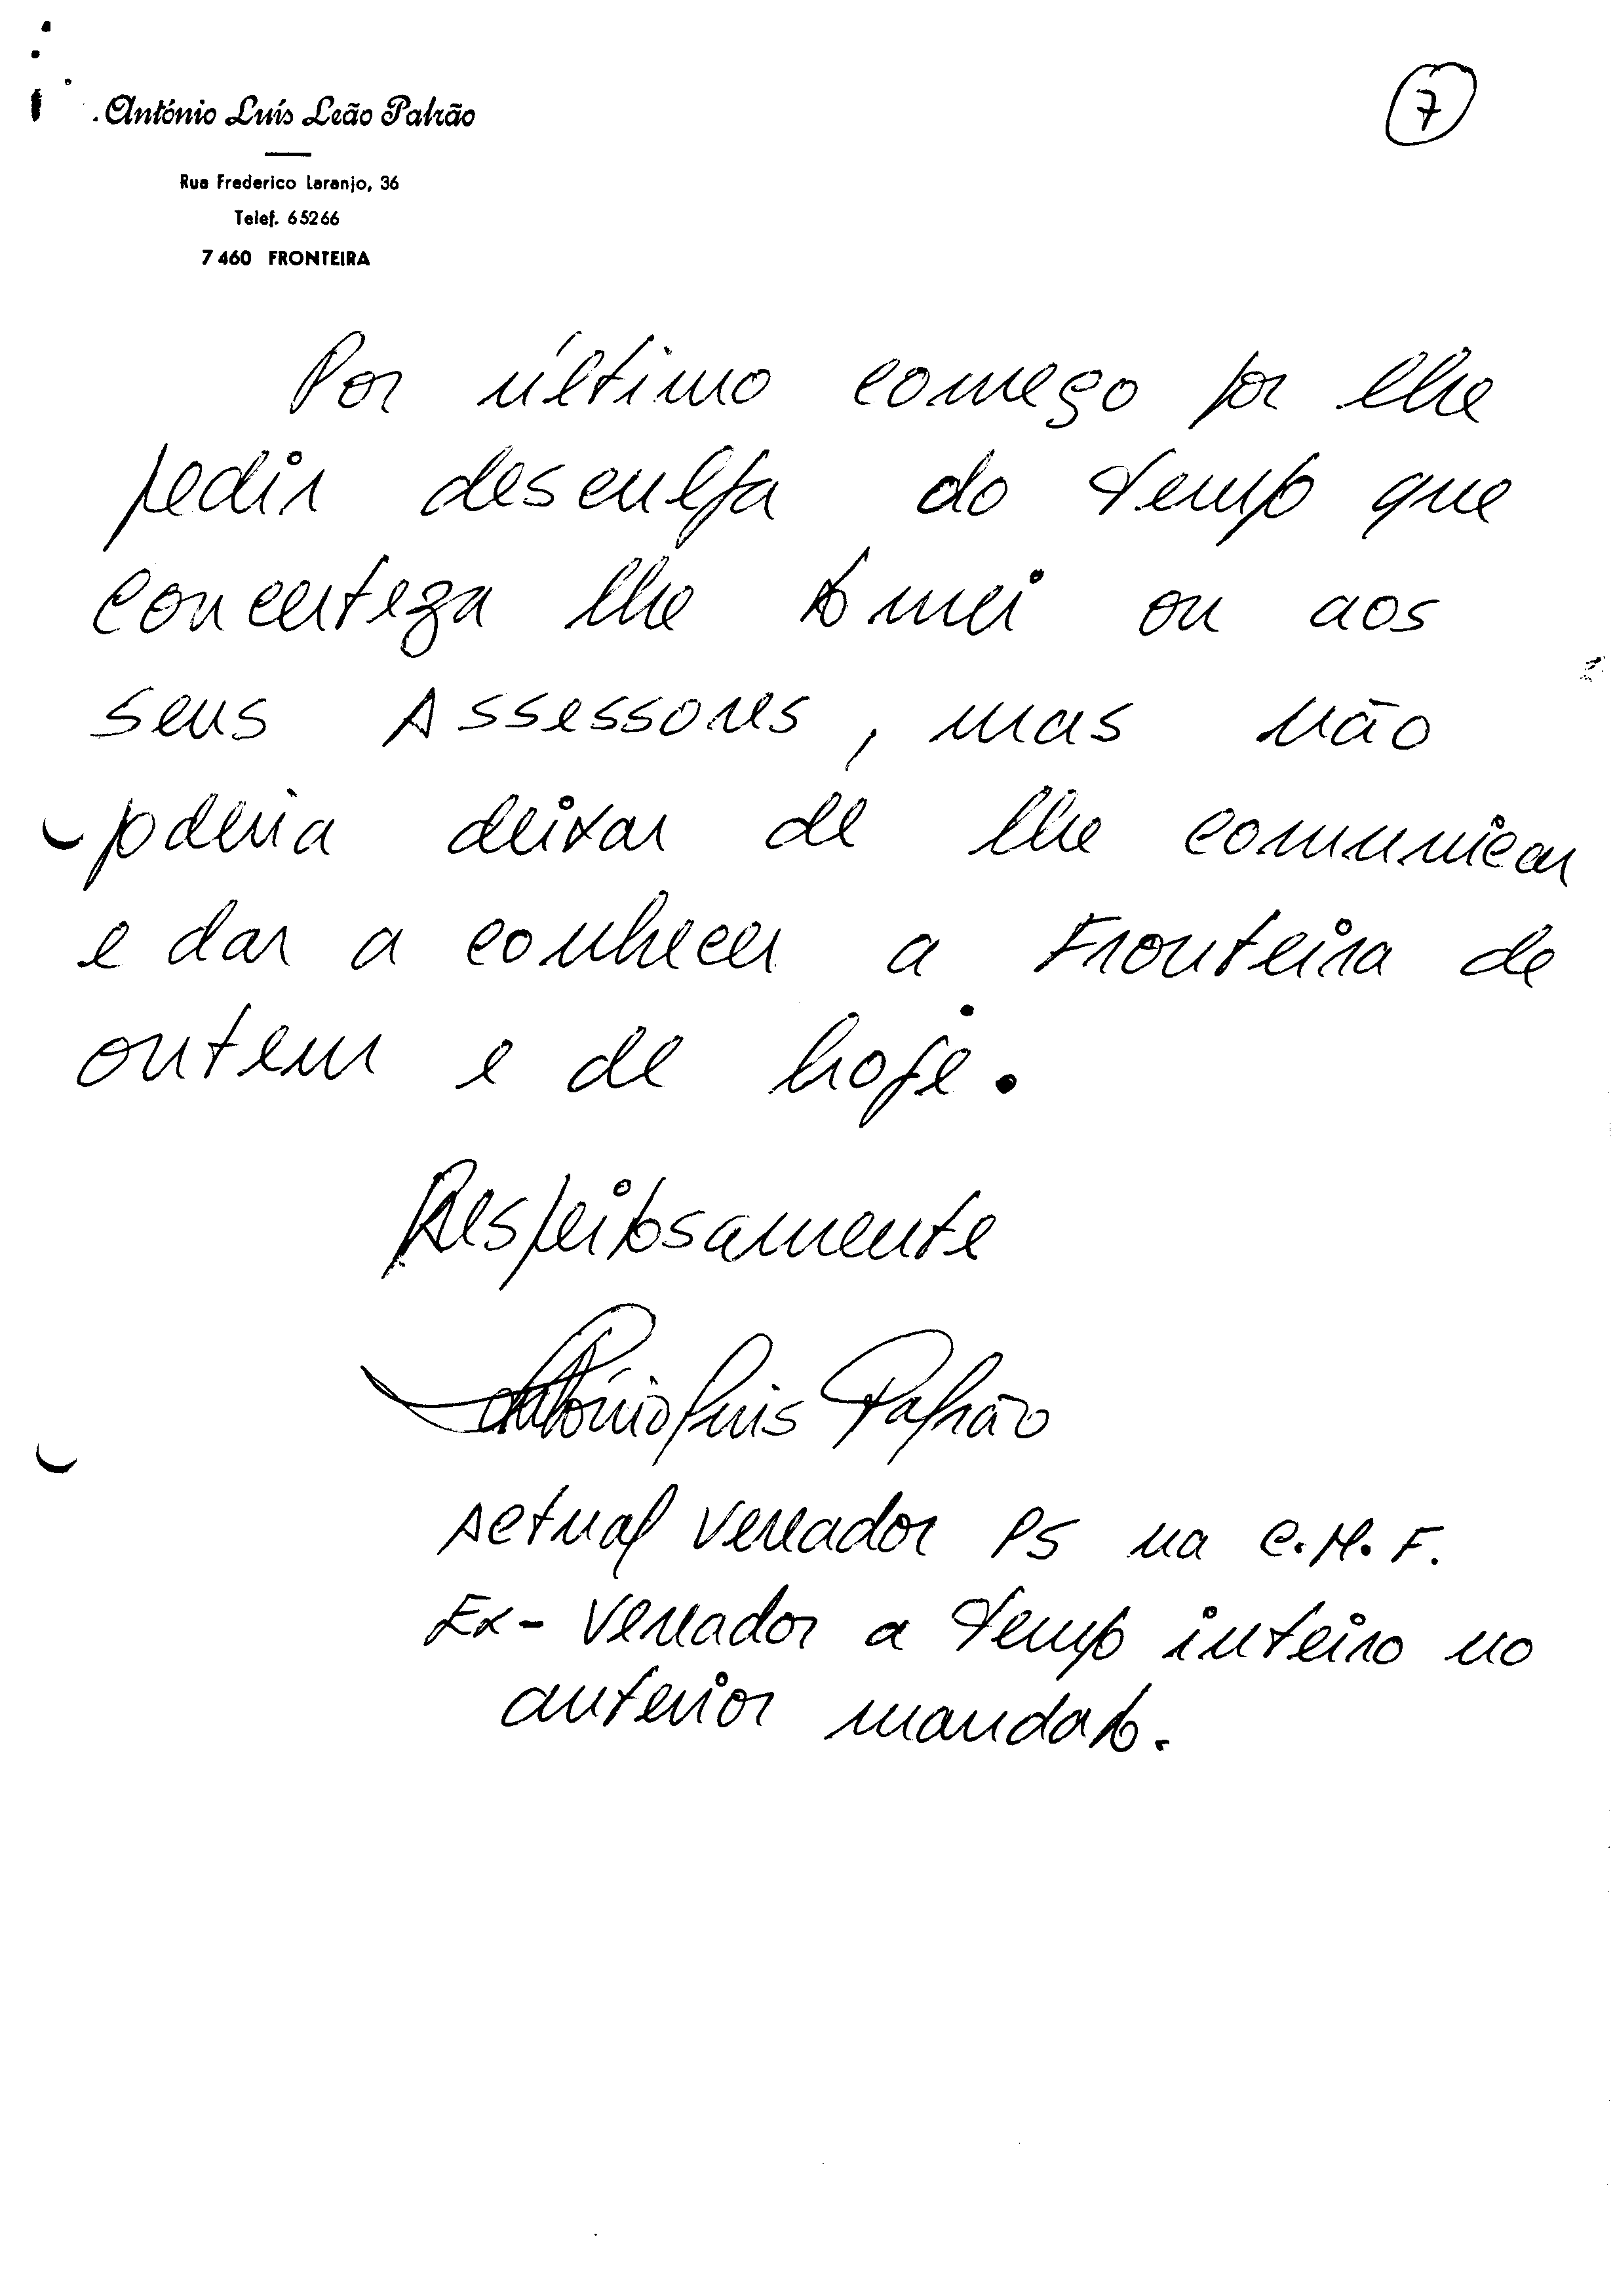 António Luís Leão Palrão
7
Rua Frederico Laranjo, 36
Telef. 65266
7460 FRONTEIRA
Por último começo por lhe
pedir desculpa do tempo que
concerteza lhe tomei ou aos
seus Assessores, mas não
poderia deixar de lhe comunicar
e dar a conhecer a Fronteira de
ontem e de hoje.
Respeitosamente
António Luis Palrão
Actual Vereador PS na C.M.F.
Ex-Vereador a tempo inteiro no
anterior mandato.